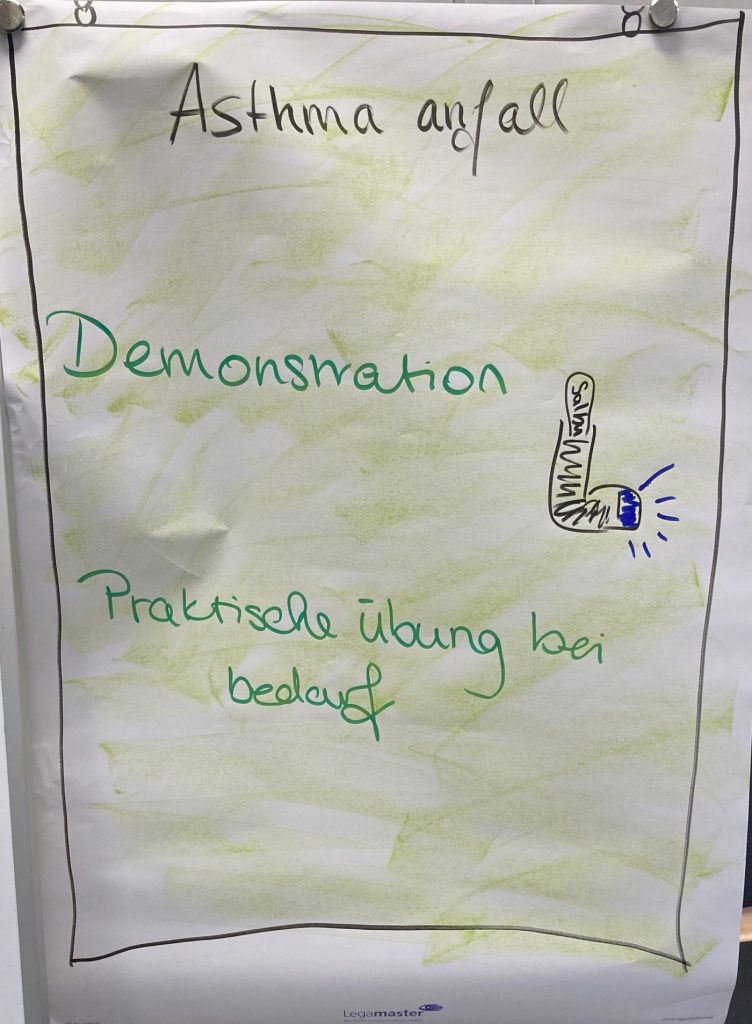 Asthma anfall
Demonstration
Salbu
Praktische übung bei
bedarf
Legamaster